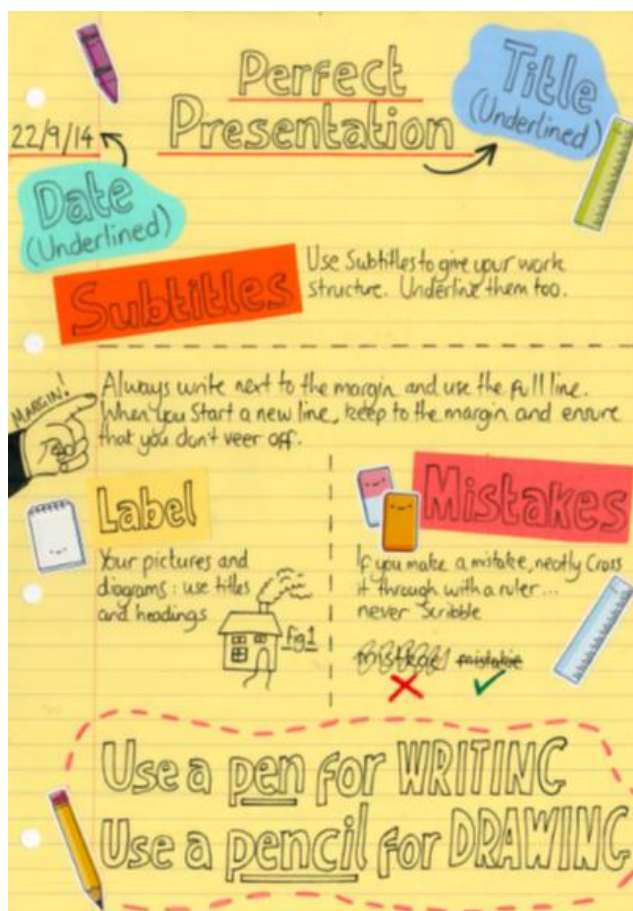 Perfect
Presentation
Title
(Underlined)
22/9/14
Date
(Underlined)
Subtitles
Use Subtitles to give your work
structure. Underline them too.
MARGIN!
Always write next to the margin and use the full line.
When you Start a new line, keep to the margin and ensure
that you don't veer off.
Label
Your pictures and
diagrams : use titles
and headings
Fig 1
Mistakes
If you make a mistake, neatly Cross
it through with a ruler...
never Scribble
mistake
Use a pen for WRITING
Use a pencil for DRAWING